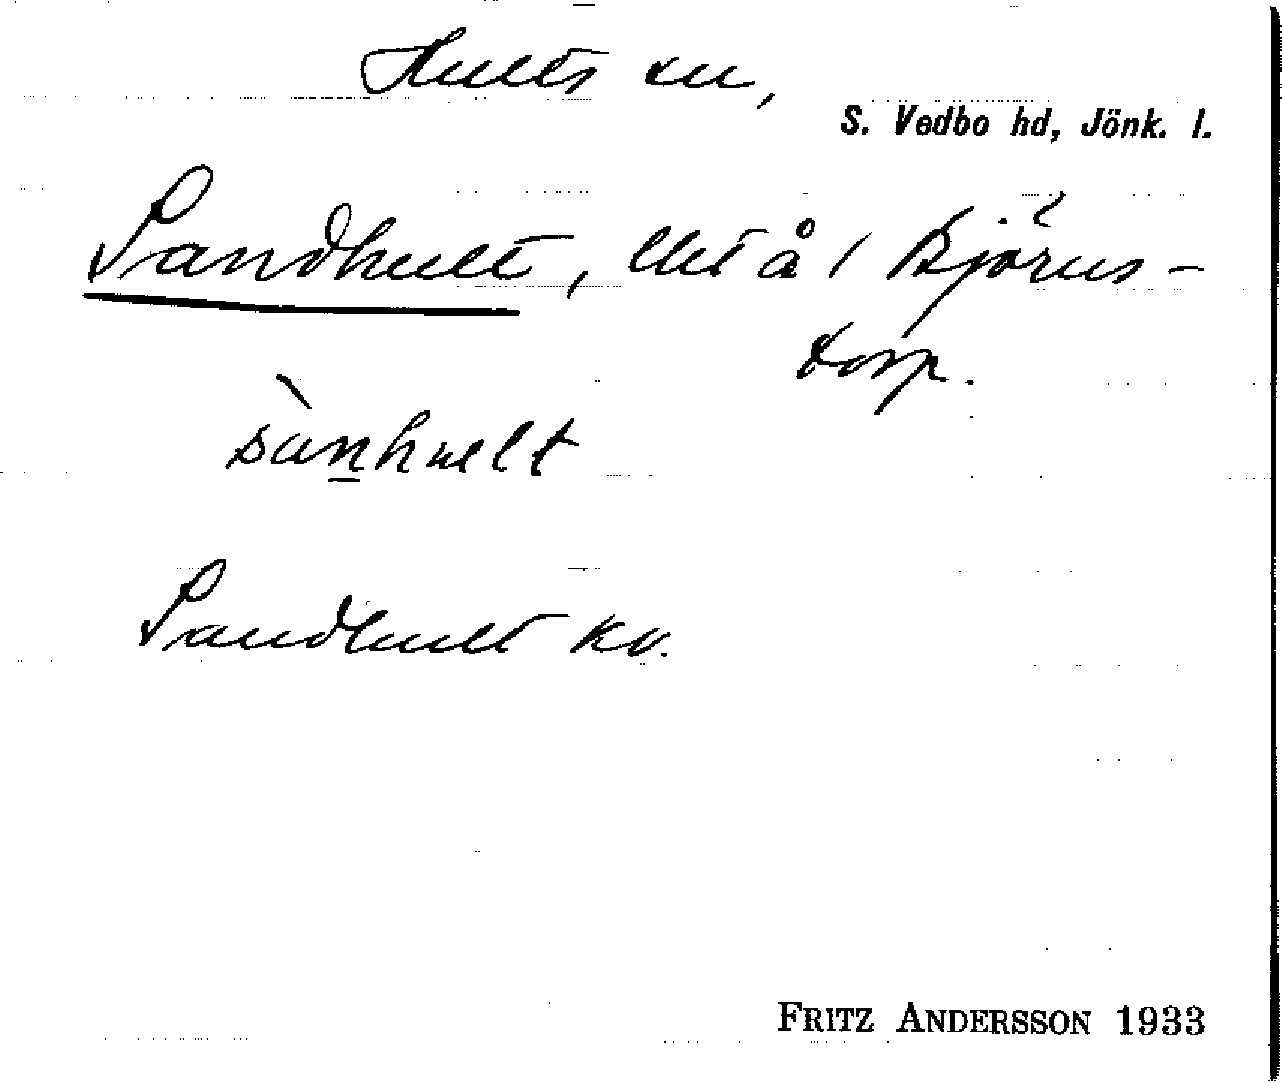 Hults sn,
S. Vedbo hd, Jönk. l.
Sandhult, lht å 1 Björns-
torp.
sànhult
Sandhult kv.
FRITZ ANDERSSON 1933